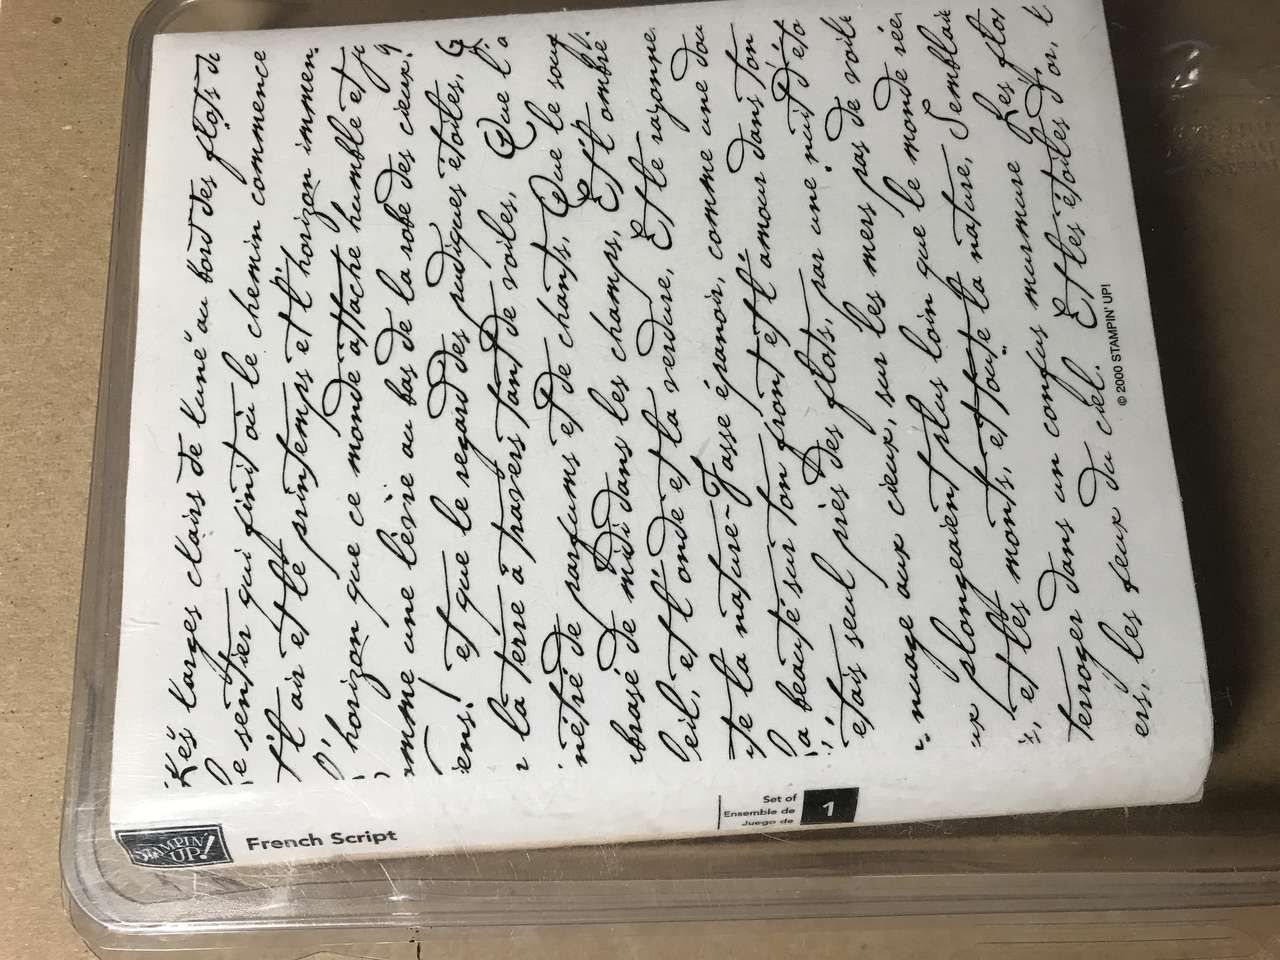 Les larges clairs de lune au bord des flots de
le sentier qui finit où le chemin commence
Et l'air et le printemps et l'horizon immen.
L'horizon que ce monde attache humble et
mme une lèvre au bas de la robe des cieux!
iens! et que le regard des pudiques étoiles,
la terre à travers tant de voiles, Que l'a
nétré de parfums et de chants, Que le souf
mbrasé de midi dans les champs, Et l'ombre
leil, et l'onde et la verdure, Et le rayonne
te la nature Fasse épanoir, comme une dou
la beauté sur ton front et l'amour dans ton
étais seul près des flots, par une nuit d'éto
nuage aux cieux, sur les mers pas de voile
ux plongeaient plus loin que le monde rée
et les monts, et toute la nature, Semblai
terroger dans un confus murmure Les flo
ers, les feux du ciel. Et les étoiles d'or, l
© 2000 STAMPIN' UP!
STAMPIN' UP!
French Script
Set of
Ensemble de
Juego de
1